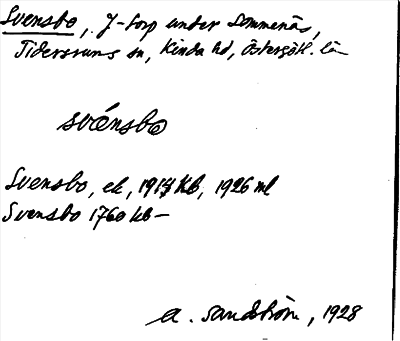 Svensbo, J-torp under Sommenäs,
Tidersrums sn, Kinda hd, Östergötl. län
svénsbo
Svensbo, ek, 1917 kb, 1926 ml
Svensbo 1760 kb –
A. Sandström, 1928